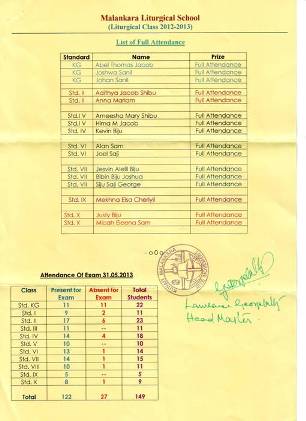 Malankara Liturgical School
(Liturgical Class 2012-2013)
List of Full Attendance
Standard Name Prize
KG Abel Thomas Jacob Full Attendance
KG Joshwa Sanil Full Attendance
KG Johan Sanil Full Attendance
Std. II Adithya Jacob Shibu Full Attendance
Std. II Anna Mariam Full Attendance
Std.I V Ameesha Mary Shibu Full Attendance
Std. IV Hima M Jacob Full Attendance
Std. IV Kevin Biju Full Attendance
Std. VI Alan Sam Full Attendance
Std. VI Joel Saji Full Attendance
Std. VII Jesvin Alelil Biju Full Attendance
Std. VII Bibin Biju Joshua Full Attendance
Std. VII Siju Saji George Full Attendance
Std. IX Mekhna Elsa Full Attendance
Std. X Justy Biju Full Attendance
Std. X Micah Geena Sam Full Attendance
--o0o--
Attendance Of Exam 31.05.2013
Class Present for Exam Absent for Exam Total Students
Std. KG 11 11 22
Std. I 9 2 11
Std. II 17 6 23
Std. III 11 -- 11
Std. IV 14 4 18
Std. V 10 -- 10
Std. VI 13 1 14
Std. VII 14 1 15
Std. VIII 10 1 11
Std. IX 5 -- 5
Std. X 8 1 9
Total 122 27 149
Head Master.